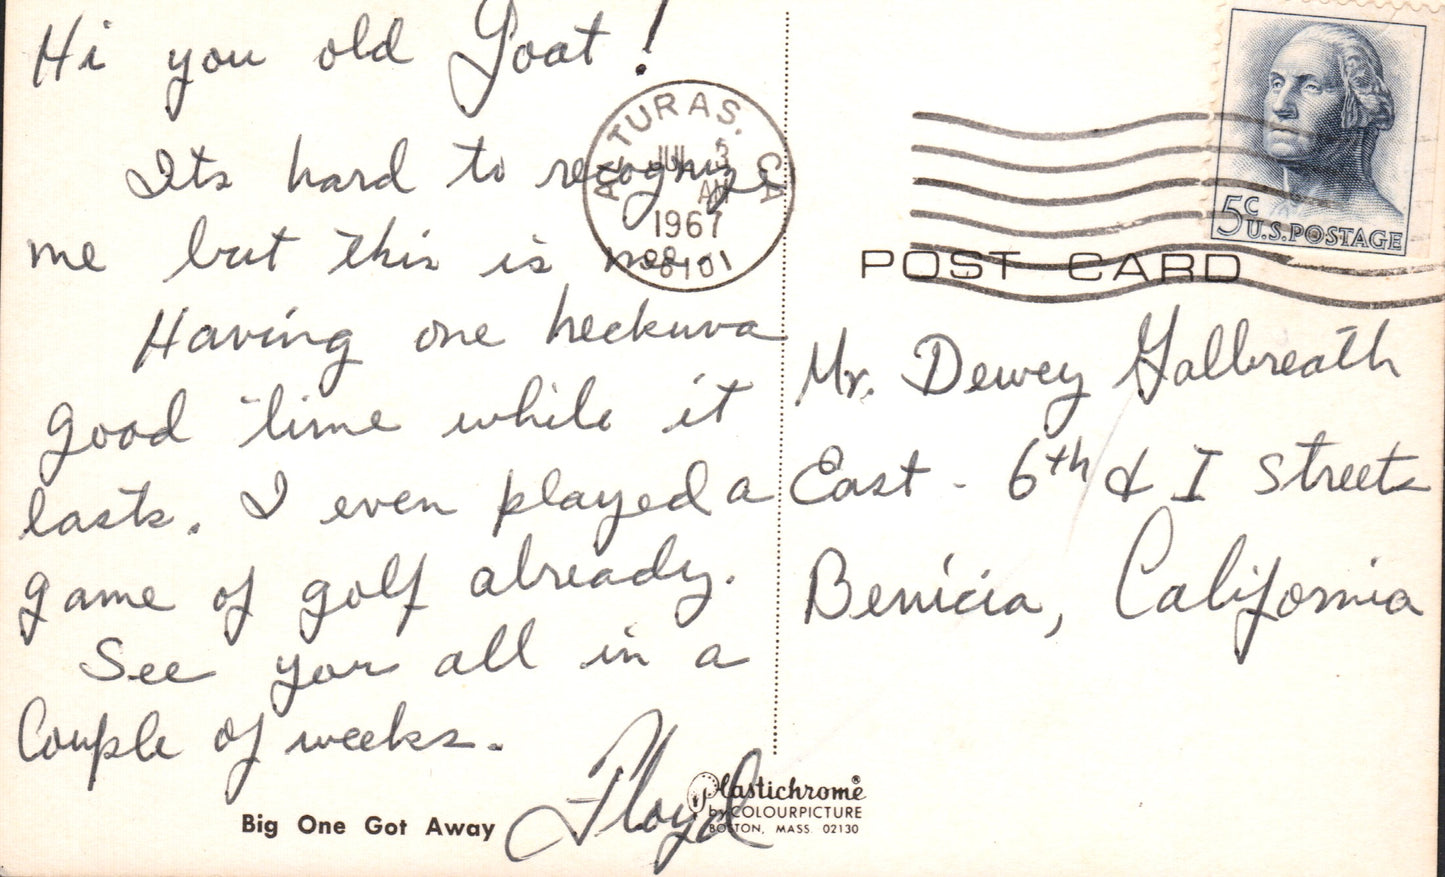 Hi you old Goat!
Its hard to recognize
me but this is me.
Having one heckuva
good time while it
lasts. I even played a
game of golf already.
See you all in a
Couple of weeks.
Floyd
Big One Got Away
Plastichrome®
by COLOURPICTURE
BOSTON, MASS. 02130
ALTURAS, CA
JUL 3
AM
1967
96101
5c
U.S. POSTAGE
POST CARD
Mr. Dewey Galbreath
East - 6th & I Streets
Benicia, California